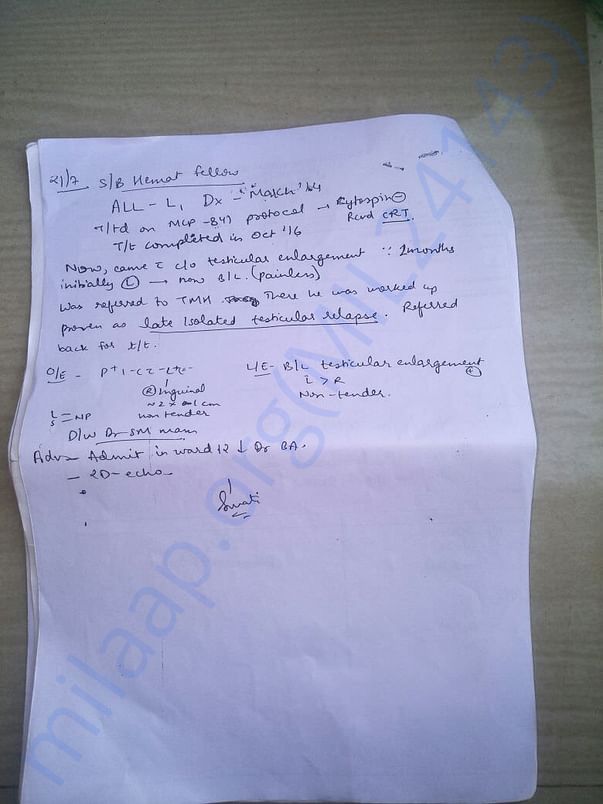 21/7 S/B Hemat fellow
ALL - L1 Dx - March '14
T/td on MCP-841 protocol → Cytospin ⊖
Rcvd CRT.
T/t completed in Oct '16
Now, came c̄ c/o testicular enlargement ∵ 2months
initially Ⓛ → now B/L. (painless)
Was referred to TMH There he was worked up
proven as late Isolated testicular relapse. Referred
back for t/t.
O/E - P+ I- C- L+
Ⓡ Inguinal
~2 x 1 cm
non tender
L/E - B/L testicular enlargement ⊕
L > R
Non-tender.
L/S = NP
D/W Dr SM mam
Adv - Admit in ward 12 ↓ Dr BA.
- 2D-echo
Swati
milaap.org(MIL24143)